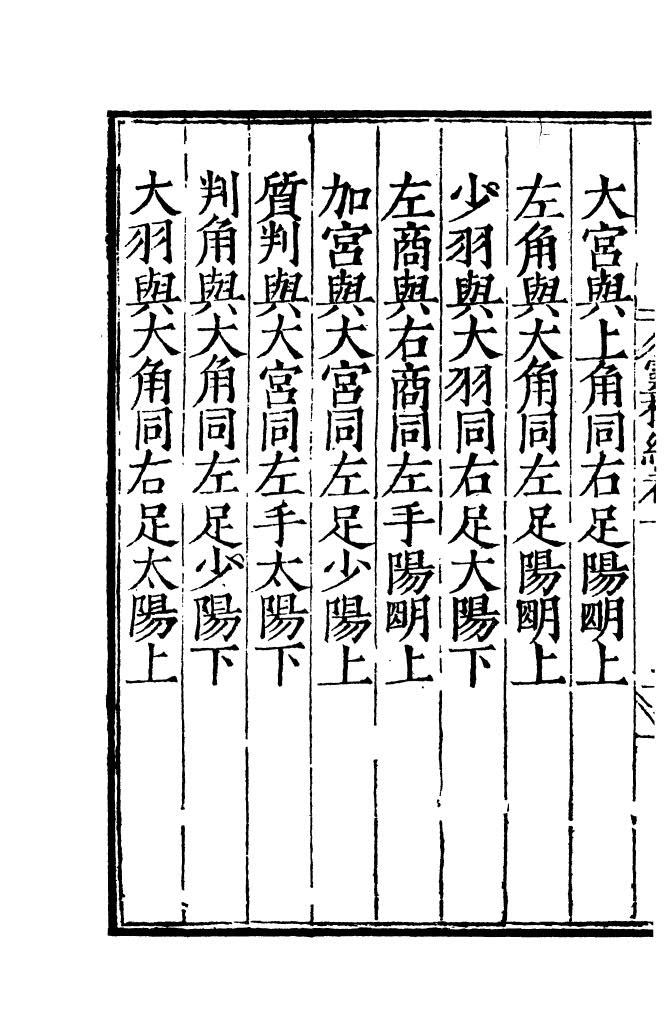 大宮與上角同右足陽明上
左角與大角同左足陽明上
少羽與大羽同右足大陽下
左商與右商同左手陽明上
加宮與大宮同左足少陽上
質判與大宮同左手太陽下
判角與大角同左足少陽下
大羽與大角同右足太陽上